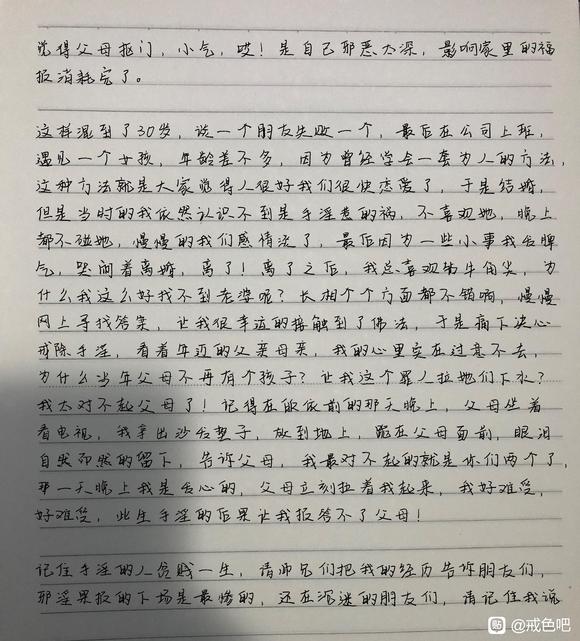 觉得父母抠门，小气，哎！是自己邪恶太深，影响家里的福
报消耗完了。
这样混到了30岁，谈一个朋友失败一个，最后在公司上班，
遇见一个女孩，年龄差不多，因为曾经学会一套为人的方法，
这种方法就是大家觉得人很好我们很快恋爱了，于是结婚，
但是当时的我依然认识不到是手淫惹的祸，不喜欢她，晚上
都不碰她，慢慢的我们感情淡了，最后因为一些小事我发脾
气，哭闹着离婚，离了！离了之后，我总喜欢钻牛角尖，为
什么我这么好找不到老婆呢？长相个个方面都不错啊，慢慢
网上寻找答案，让我很幸运的接触到了佛法，于是痛下决心
戒除手淫，看着年迈的父亲母亲，我的心里实在过意不去，
为什么当年父母不再有个孩子？让我这个罪人拉她们下水？
我太对不起父母了！记得在皈依前的那天晚上，父母坐着
看电视，我拿出沙发垫子，放到地上，跪在父母面前，眼泪
自然而然的留下，告诉父母，我最对不起的就是你们两个了，
那一天晚上我是发心的，父母立刻拉着我起来，我好难受，
好难受，此生手淫的后果让我报答不了父母！
记住手淫的人贪贱一生，请师兄们把我的经历告诉朋友们，
邪淫果报的下场是最惨的，还在沉迷的朋友们，请记住我说
贴 @戒色吧